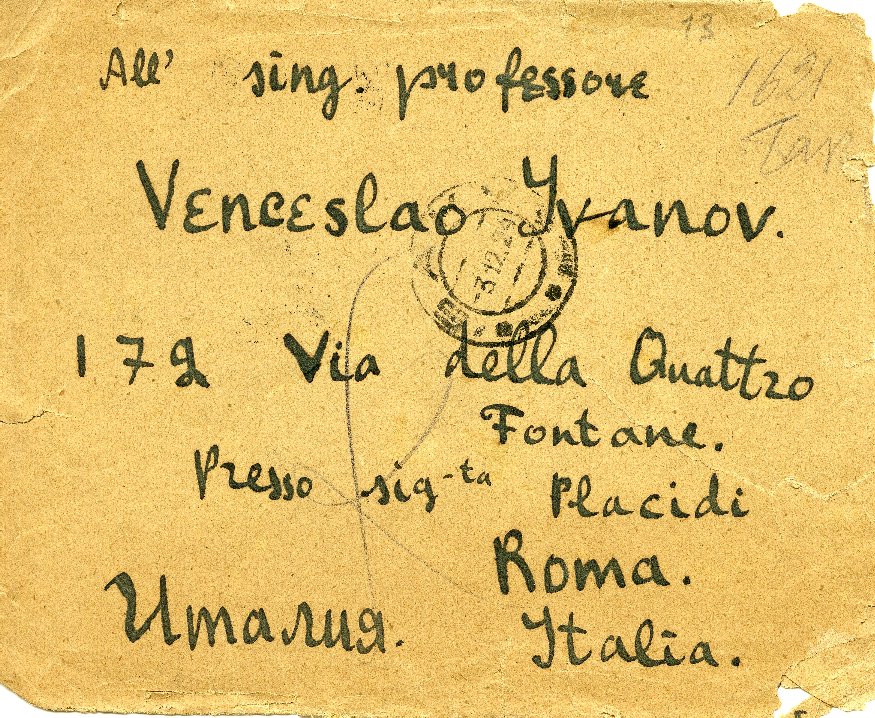 13
All' sing. professore
1621
Venceslao Ivanov.
3.12.25
172 Via della Quattro
Fontane.
Presso sig-ta Placidi
Roma.
Италия. Italia.